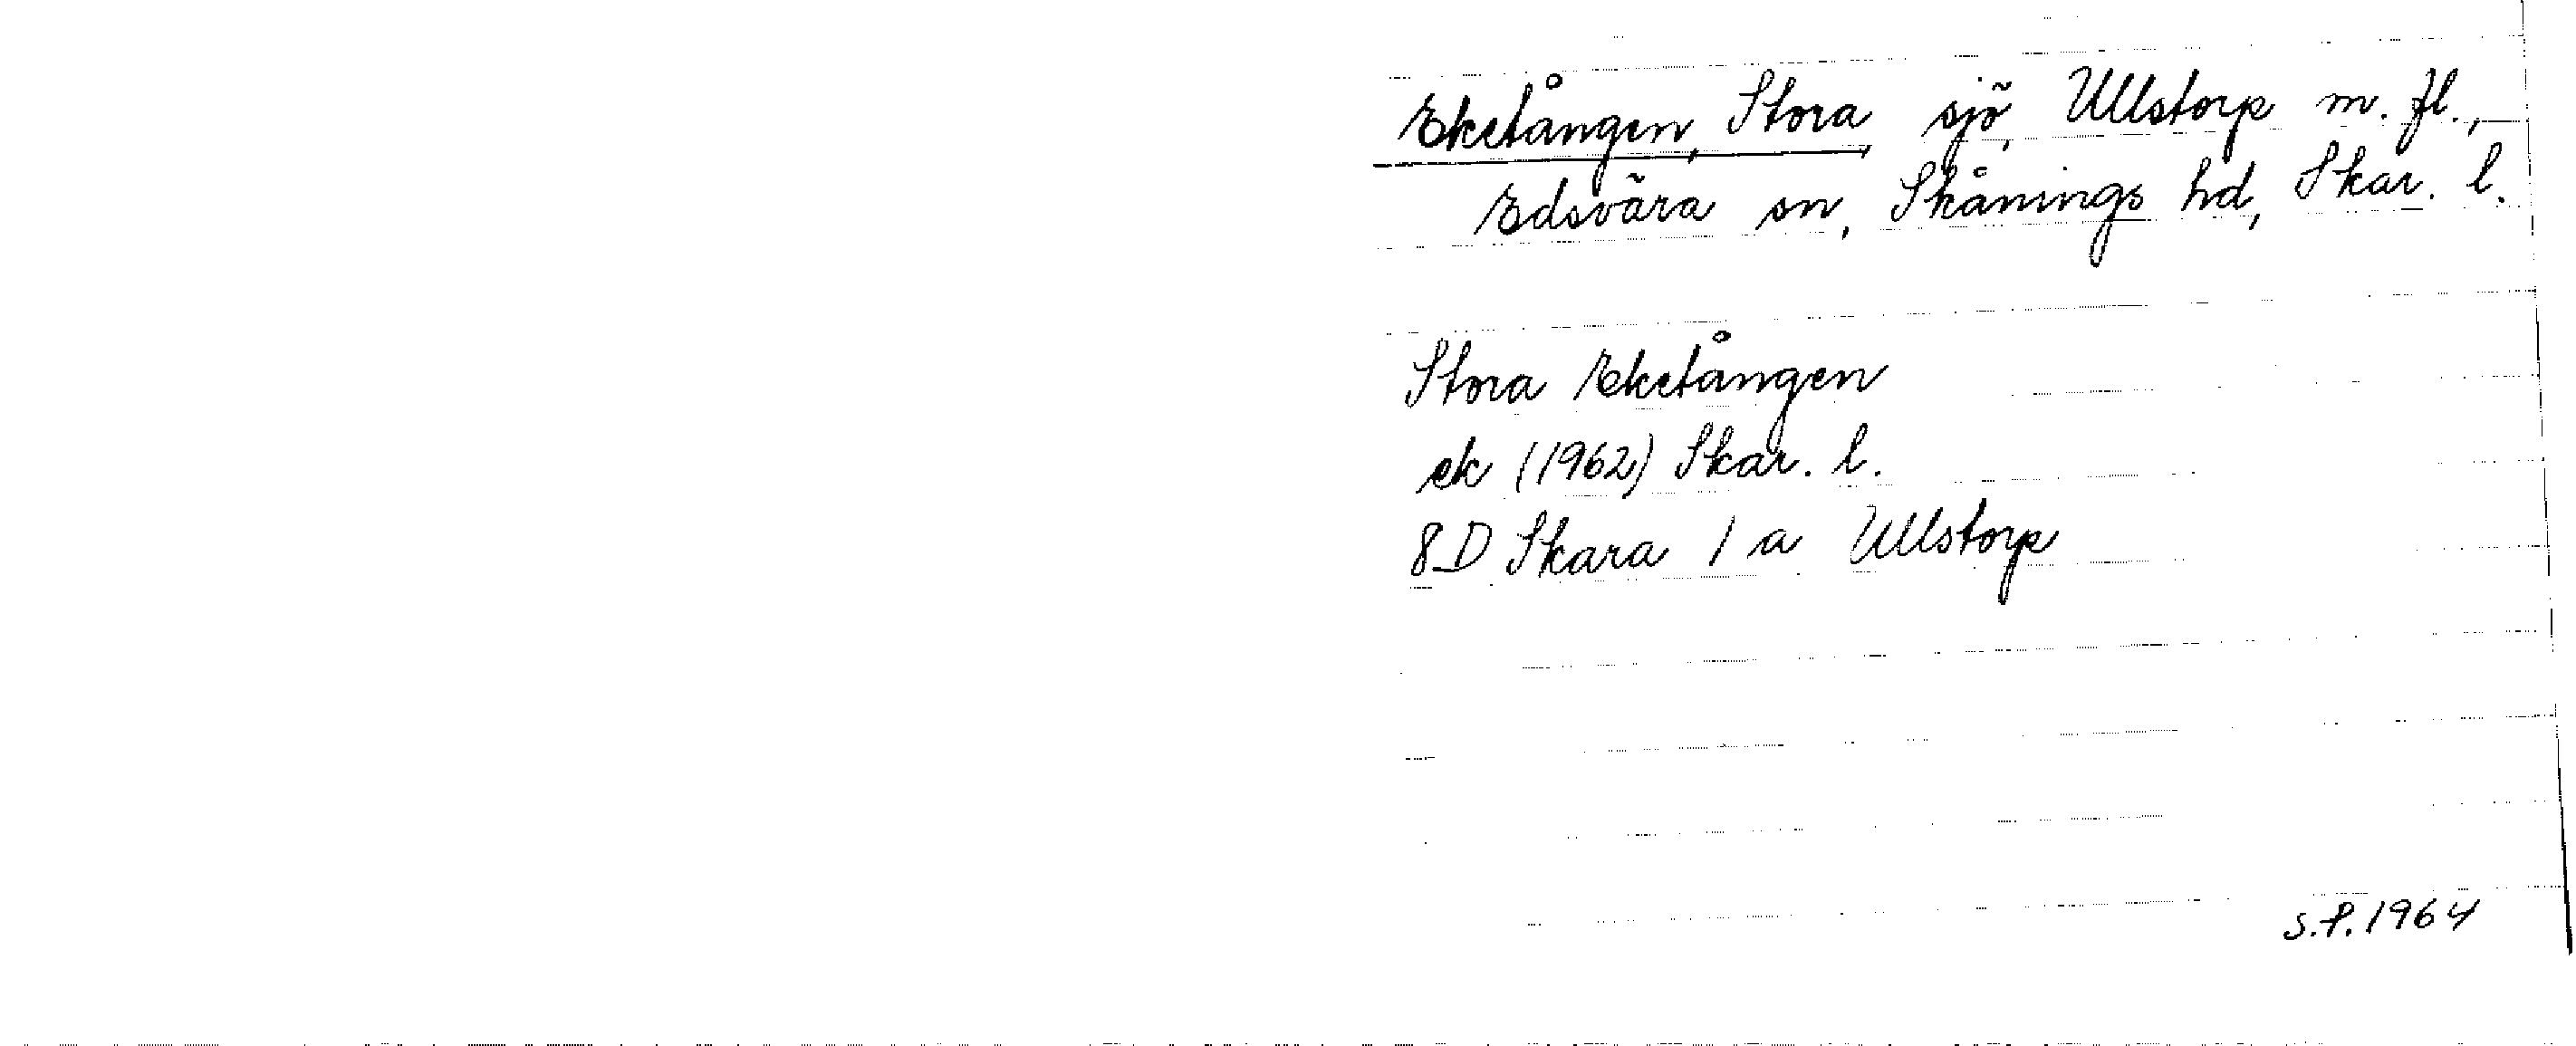 Eketången, Stora, sjö, Ullstorp m. fl.,
Edsvära sn, Skånings hd, Skar. l.
Stora Eketången
ek (1962) Skar. l.
8D Skara 1 a Ullstorp
S.P. 1964